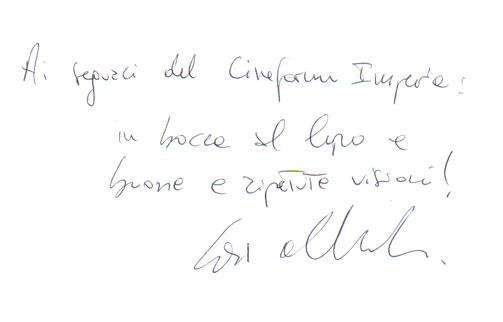 Ai seguaci del Cineforum Imperia:
in bocca al lupo e
buone e ripetute visioni!